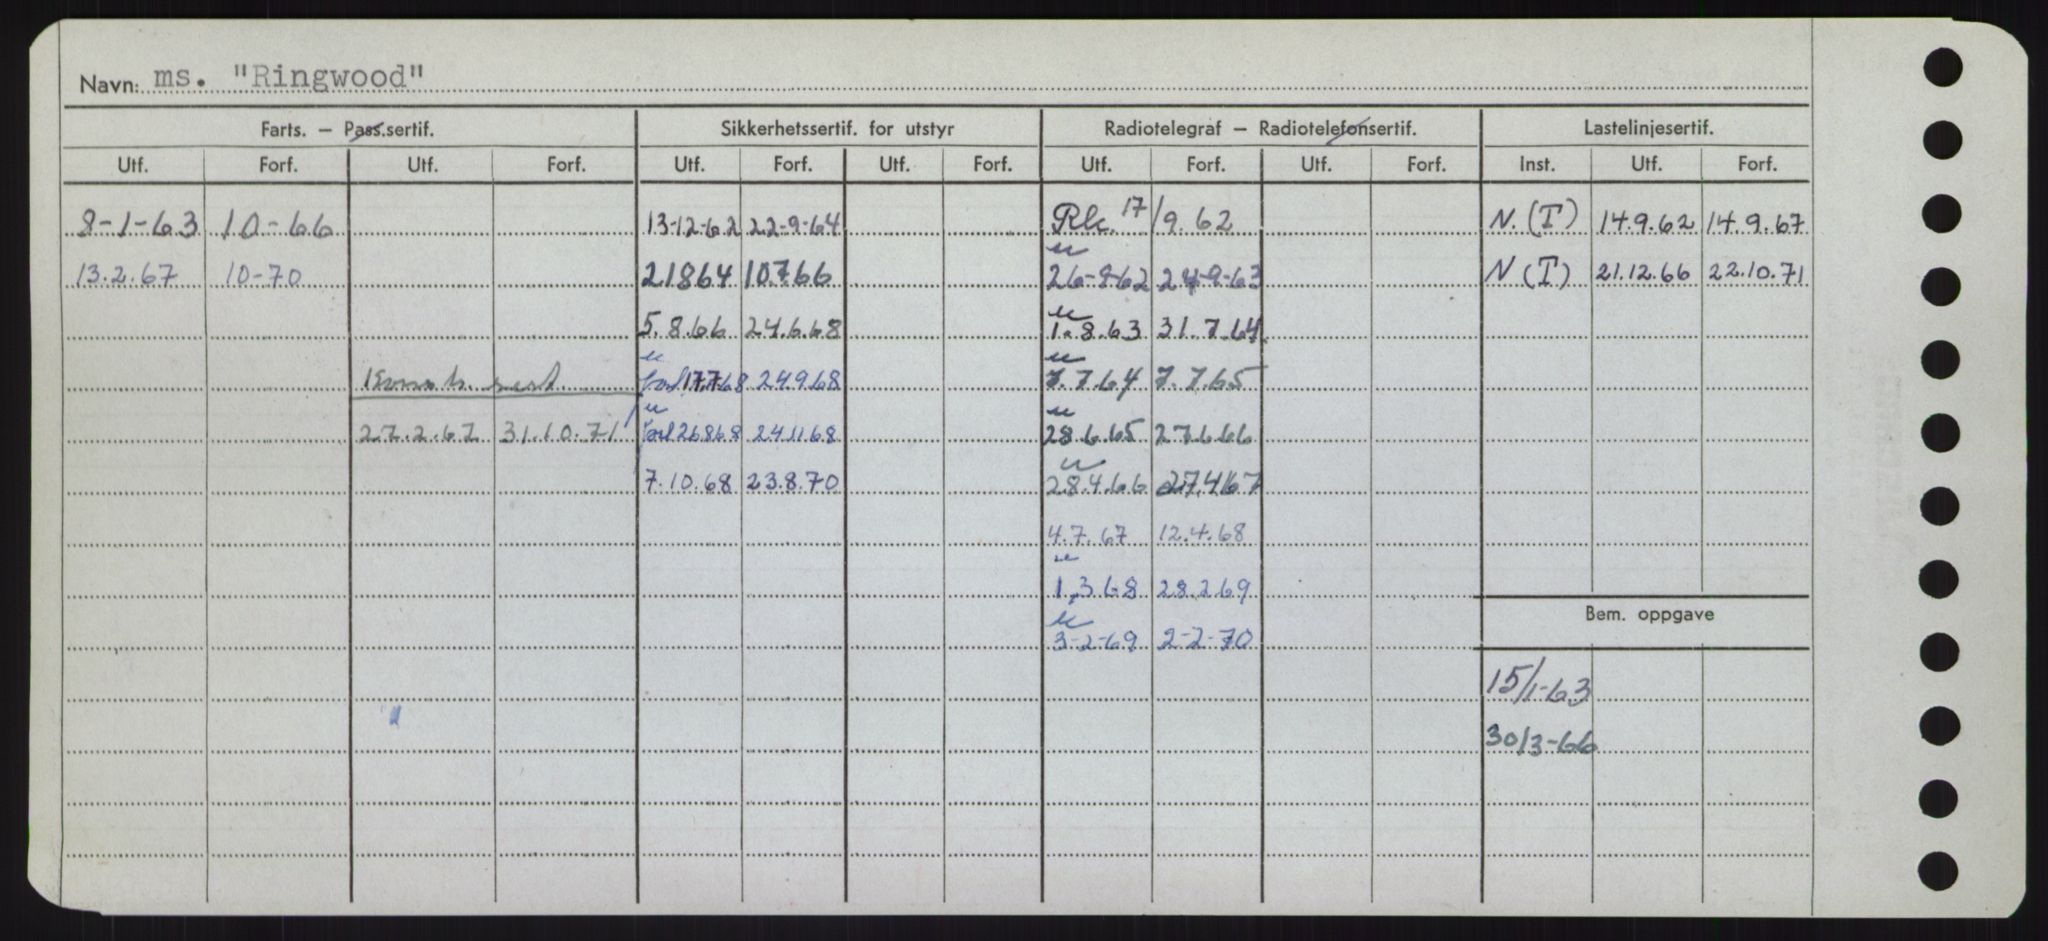 Navn: ms. "Ringwood"
Farts. – Pass.sertif. Sikkerhetssertif. for utstyr Radiotelegraf – Radiotelefonsertif. Lastelinjesertif.
Utf. Forf. Utf. Forf. Utf. Forf. Utf. Forf. Utf. Forf. Utf. Forf. Inst. Utf. Forf.
8-1-63 10-66 13-12-62 22-9-64 Rk. 17/9.62 N.(T) 14.9.62 14.9.67
13.2.67 10-70 21864 10766 26-9-62 24-9-63 N(T) 21.12.66 22.10.71
5.8.66 24.6.68 1.8.63 31.7.64
sert. 17.7.68 24968 7.7.64 7.7.65
27.2.67 31.10.71 26868 241168 28.6.65 27.6.66
7.10.68 23.8.70 28.4.66 27.4.67
4.7.67 12.4.68
1.3.68 28.2.69
Bem. oppgave
3-2-69 2-2-70
15/1-63
30/3-66